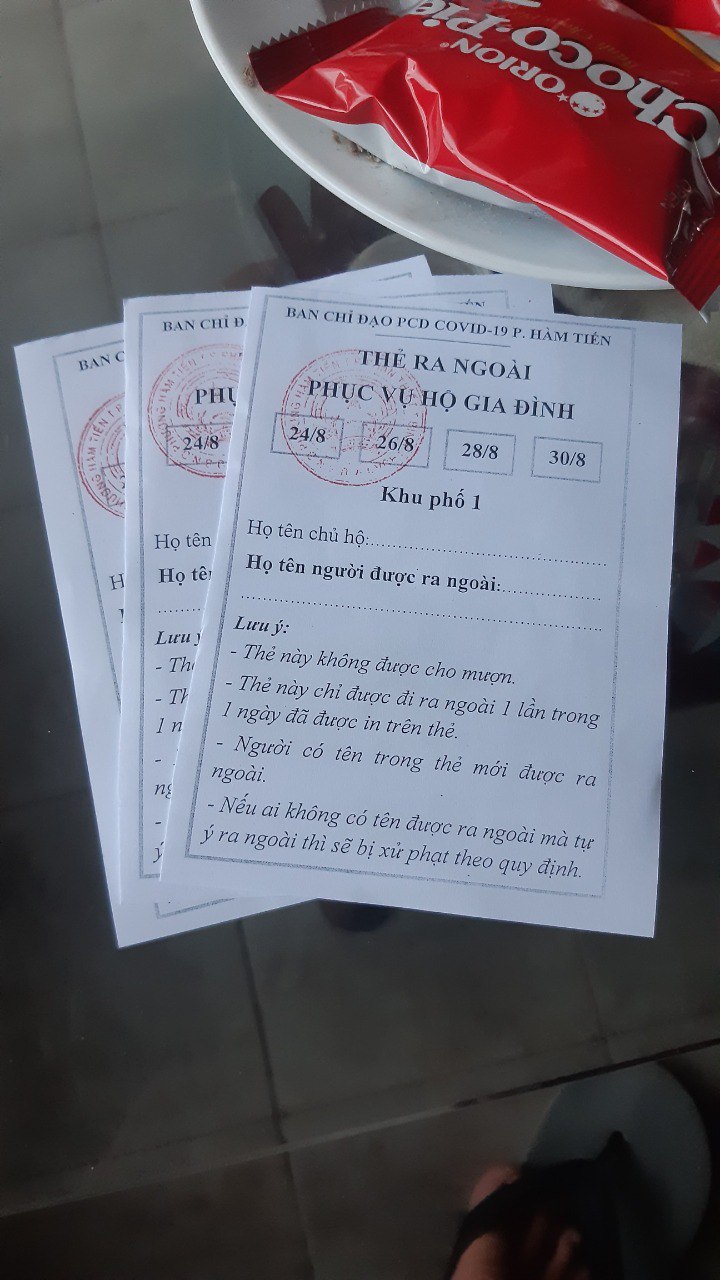 ORION
Choco·Pie
BAN CHỈ ĐẠO PCD COVID-19 P. HÀM TIẾN
THẺ RA NGOÀI
PHỤC VỤ HỘ GIA ĐÌNH
24/8 26/8 28/8 30/8
Khu phố 1
Họ tên chủ hộ:
Họ tên người được ra ngoài:
Lưu ý:
- Thẻ này không được cho mượn.
- Thẻ này chỉ được đi ra ngoài 1 lần trong
1 ngày đã được in trên thẻ.
- Người có tên trong thẻ mới được ra
ngoài.
- Nếu ai không có tên được ra ngoài mà tự
ý ra ngoài thì sẽ bị xử phạt theo quy định.
BAN CHỈ Đ
PHỤ
24/8
Họ tên
Họ tê
Lưu ý
- Th
- Th
1 n
-
ng
-
ý
BAN C
H